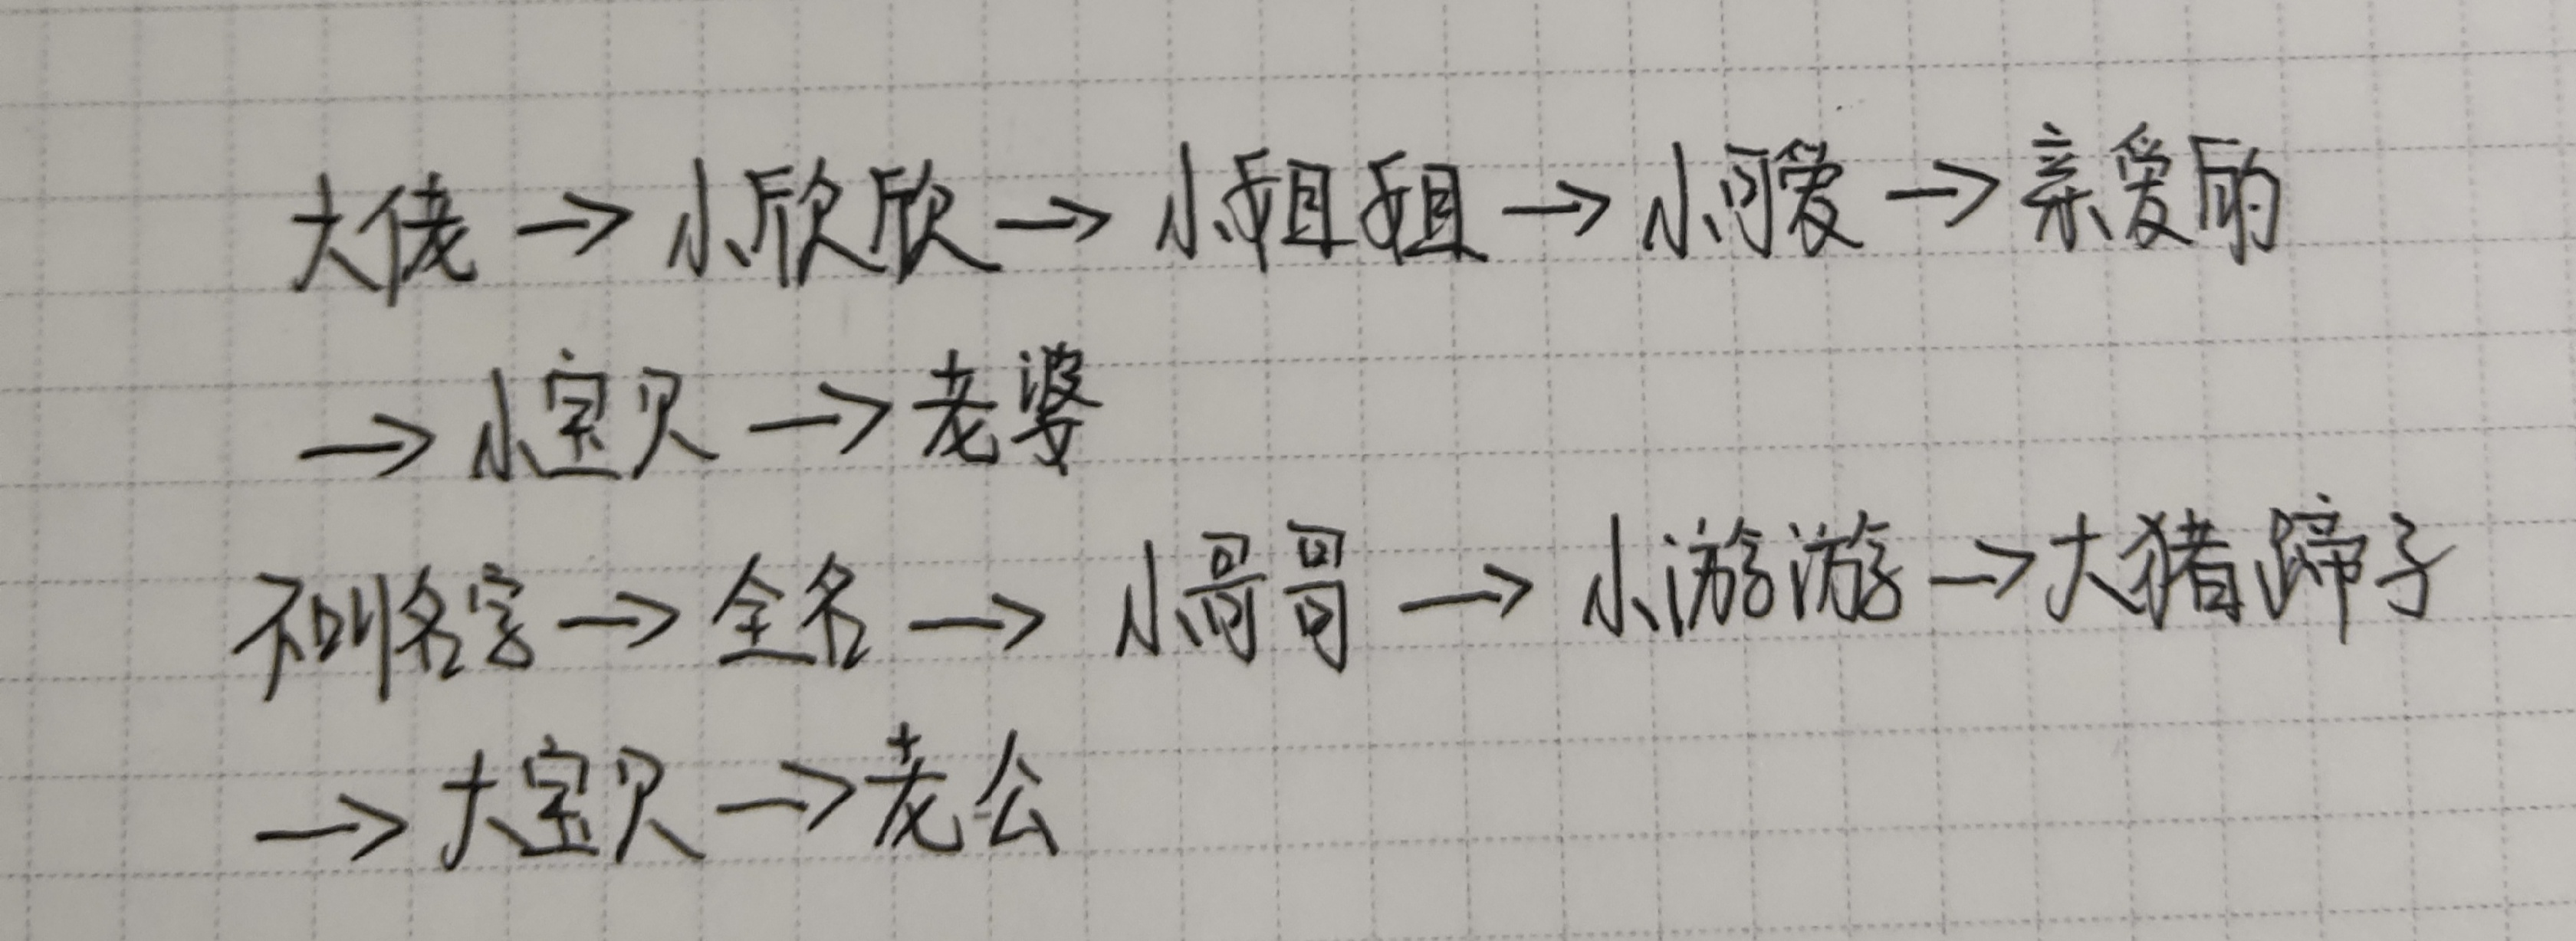 大佬→小欣欣→小姐姐→小可爱→亲爱的
→小宝贝→老婆
不叫名字→全名→小哥哥→小游游→大猪蹄子
→大宝贝→老公